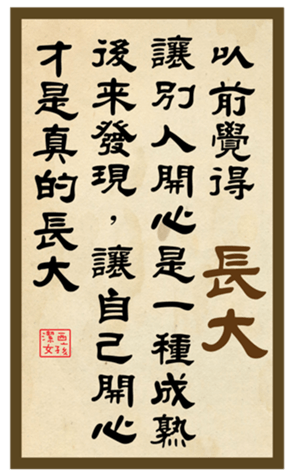 長大
以前覺得
讓別人開心是一種成熟
後来發現，讓自己開心
才是真的長大